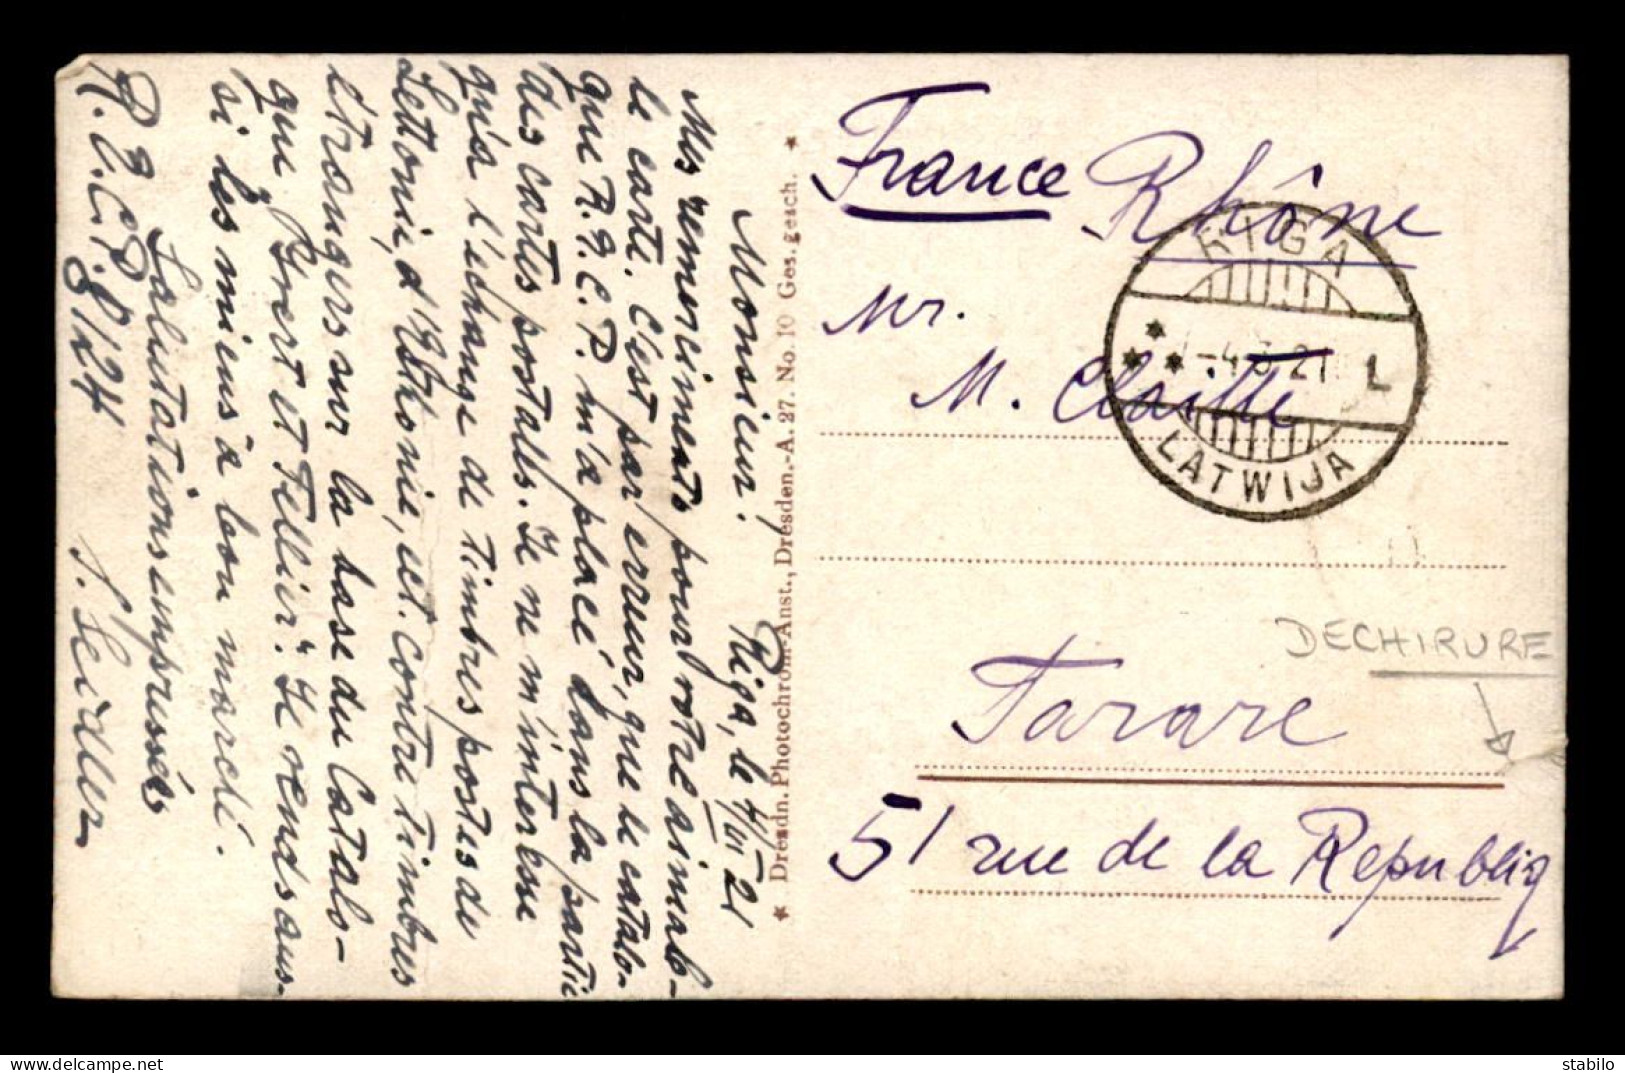 Riga, le 4/VI 21
Monsieur.
Mes remerciments pour votre aimab-
le carte. C'est par erreur, que le catalo-
gue R.B.C.P. m'a placé dans la partie
des cartes postals. Je ne m'interesse
qu'a l'echange de timbres postes de
Lettonie, d'Esthonie, ect. contre timbres
étrangers sur la base du Catalo-
gue "Yvert et Tellier". Je vends aus-
si les miens à bon marché.
Salutations empressées
R.B.C.P. 8124
J. Seidler
* Dresdn. Photochrom-Anst., Dresden.-A. 27. No. 10 Ges. gesch. *
France Rhône
Mr.
M. Claitte
Tarare
51 rue de la Republiq
RIGA
-4 6 21
L
LATWIJA
DECHIRURE
stabilo - delcampe.net